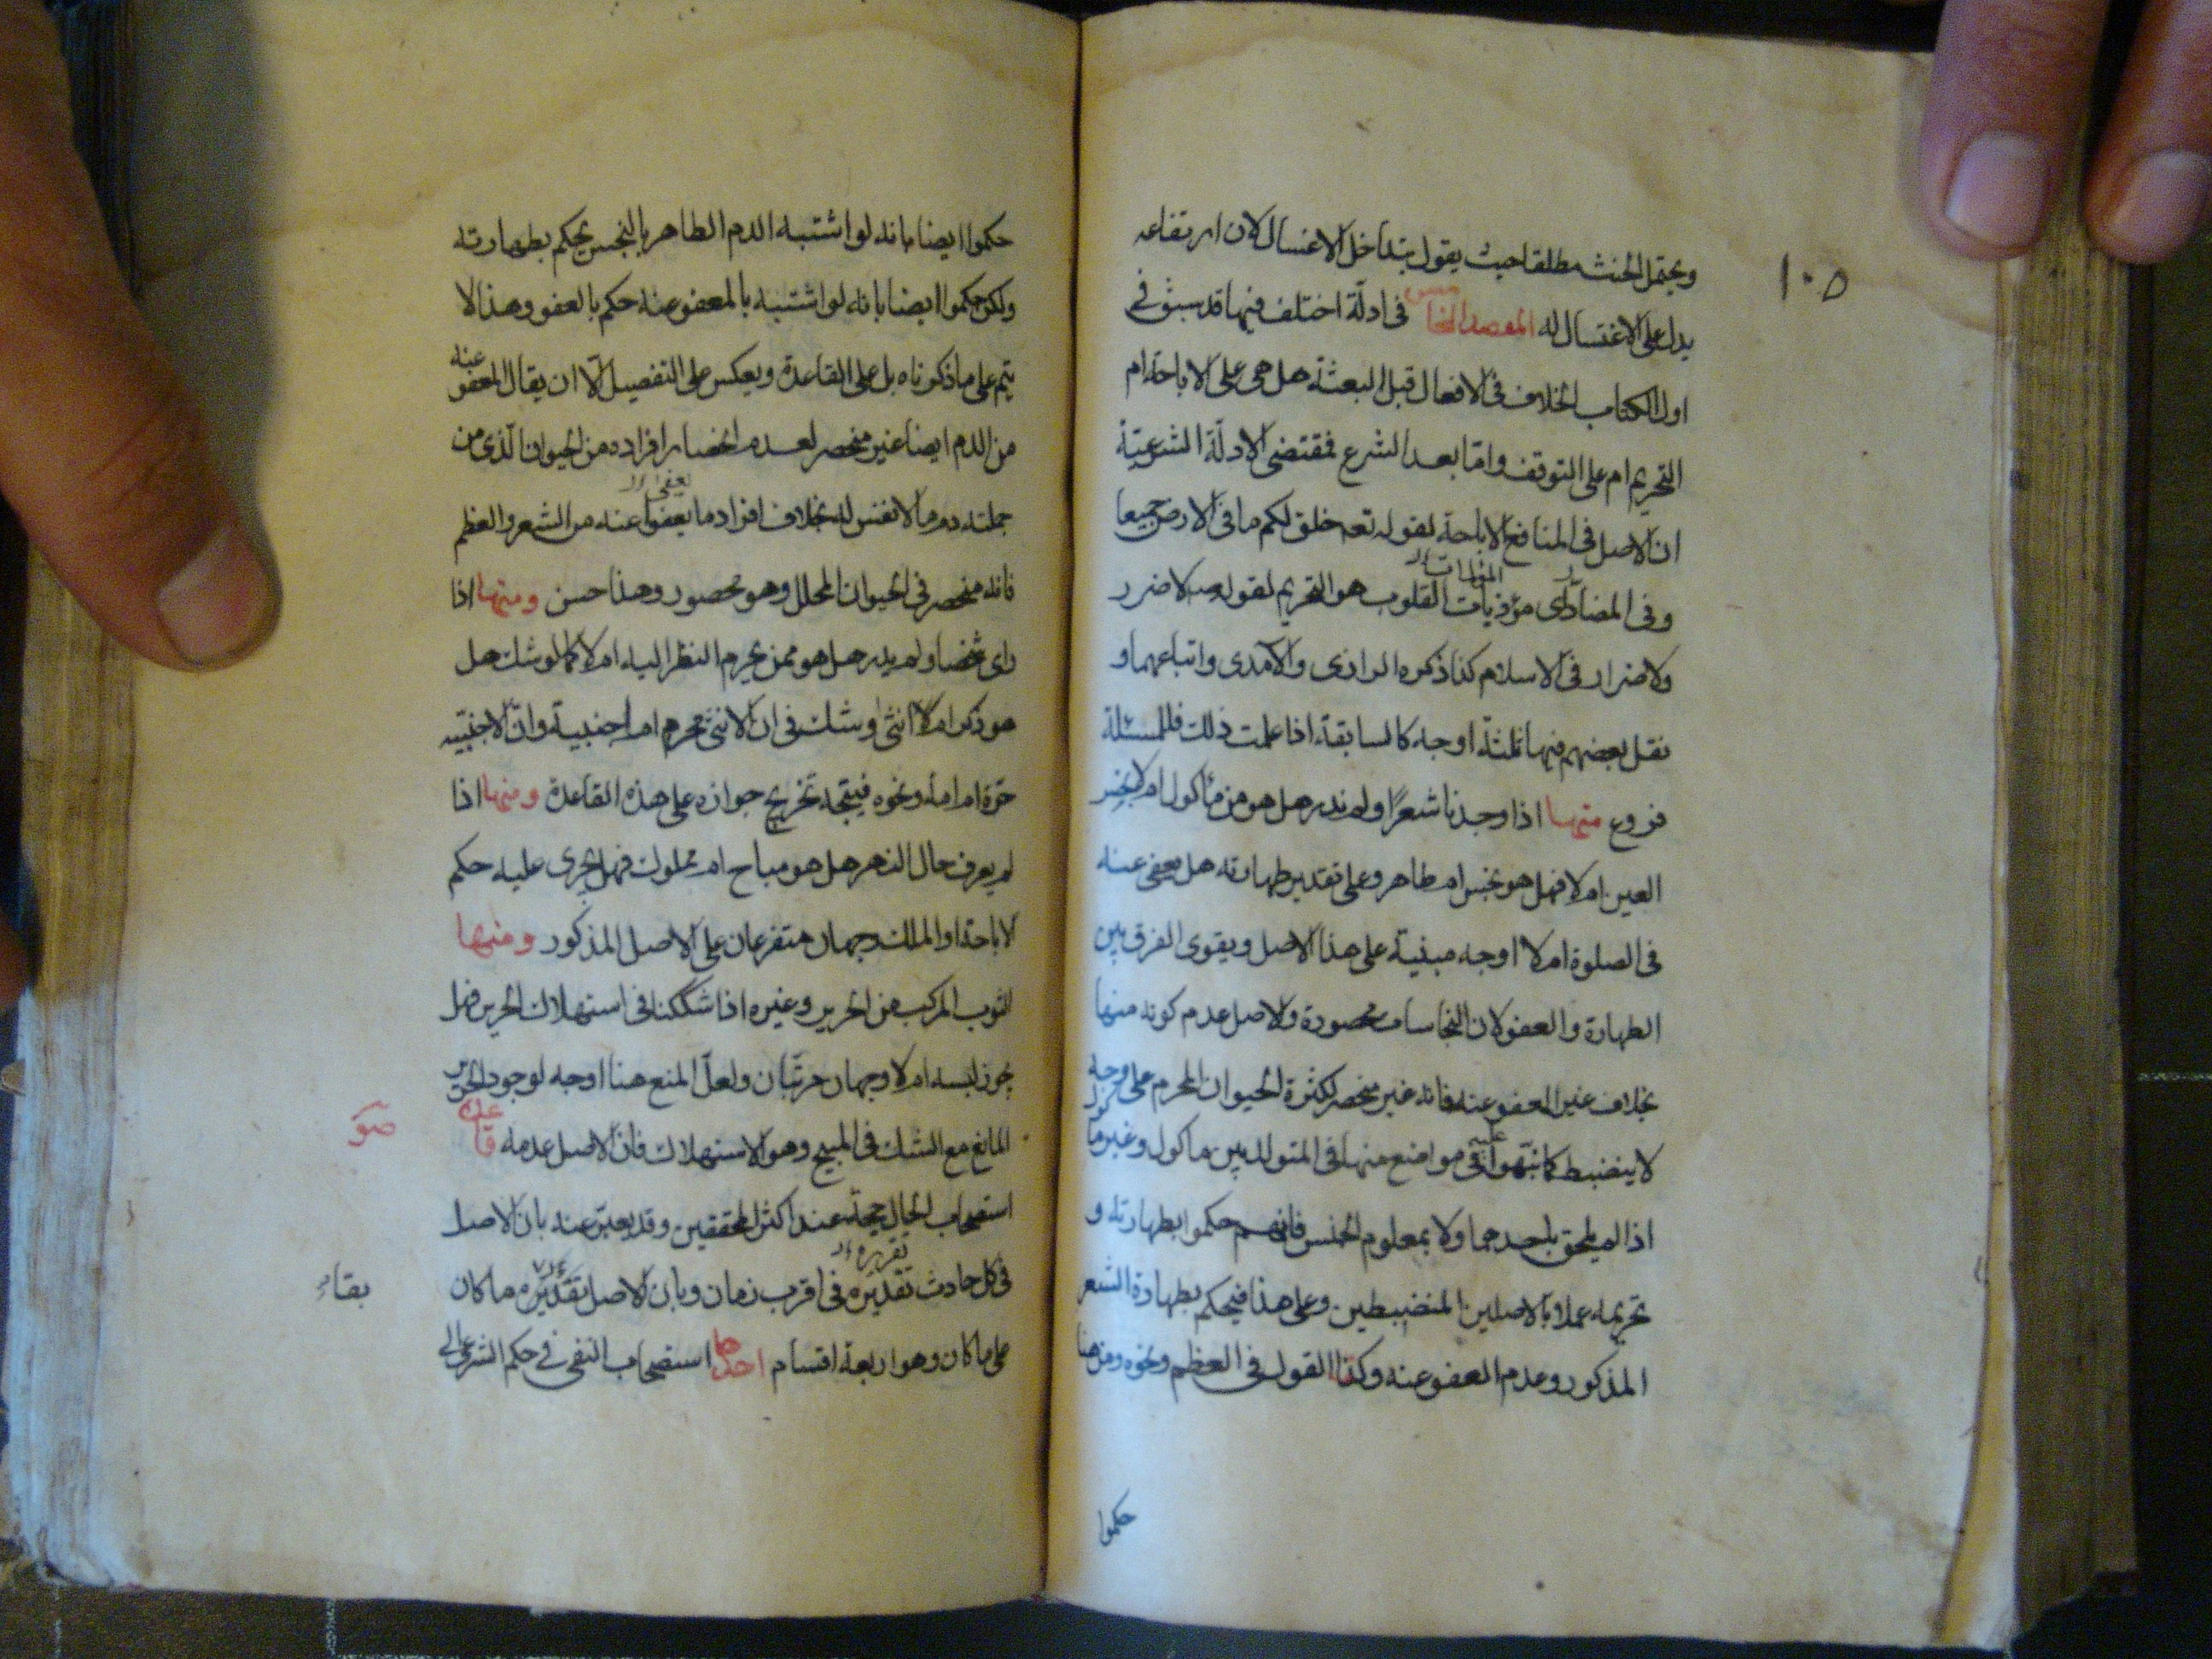 ١٠٥
ويحتمل الحنث مطلقا حيث يقول بتداخل الاغسال لان ارتفاعه
يدل على الاغتسال له المقصد الخامس في ادلّة اختلف فيها قد سبق في
اول الكتاب الخلاف في الافعال قبل البعثة هل هي على الاباحة ام
التحريم ام على التوقف وامّا بعد الشرع فمقتضى الادلّة الشرعيّة
ان الاصل في المنافع الاباحة لقوله تعه خلق لكم ما في الارض جميعا
وفي المضارّ اى مؤذيات القلوب هو التحريم لقوله ص لا ضرر
ولا ضرار في الاسلام كذا ذكره الرازى والآمدى واتباعهما و
نقل بعضهم فيها ثلثة اوجه كالسابقة اذا علمت ذلك فللمسئلة
فروع منها اذا وجدنا شعرًا ولم ندر هل هو من مأكول ام لا نجس
العين ام لا فهل هو نجس ام طاهر وعلى تقدير طهارته هل يعفى عنه
في الصلوة ام لا اوجه مبنية على هذا الاصل ويقوى الفرق بين
الطهارة والعفو لان النجاسات محصورة ولاصل عدم كونه منها
بخلاف غير المعفو عنه فانه غير منحصر لكثرة الحيوان المحرم على وجه
لا ينضبط كما نبّهوا عليه في مواضع منها في المتولد بين مأكول وغير مأكول
اذا لم يلحق باحدهما ولا بمعلوم الجنس فانهم حكموا بطهارته و
تحريمه عملا بالاصلين المنضبطين وعلى هذا فيحكم بطهارة الشعر
المذكور وعدم العفو عنه وكذا القول في العظم ونحوه ومن هنا
حكموا
حكموا ايضا بانه لو اشتبه الدم الطاهر بالنجس يحكم بطهارته
ولكن حكموا ايضا بانه لو اشتبه بالمعفو عنه حكم بالعفو وهذا لا
يتم على ما ذكرناه بل على القاعدة ويعكس على التفصيل الّا ان يقال المعفو عنه
من الدم ايضا غير منحصر لعدم انحصار افراده من الحيوان الّذى من
جملته دم ما لا نفس له بخلاف افراد ما يعفوا عنه من الشعر والعظم
فانه منحصر في الحيوان المحلل وهو محصور وهذا حسن ومنها اذا
راى شخصا ولم يدر هل هو ممن يحرم النظر اليه ام لا كما لو شك هل
هو ذكر ام لا انثى او شك في ان الانثى محرم ام اجنبية وان الاجنبيّه
حرّة ام امة ونحوه فيتجه تخريج جوازه على هذه القاعدة ومنها اذا
لم يعرف حال النهر هل هو مباح ام مملوك فهل يجرى عليه حكم
لاباحة او الملك وجهان متفرعان على الاصل المذكور ومنها
الثوب المركب من الحرير وغيره اذا شككنا في استهلاك الحرير فهل
يجوز لبسه ام لا وجهان مرتّبان ولعلّ المنع هنا اوجه لوجود الحرير
المانع مع الشك في المبيح وهو الاستهلاك فان الاصل عدمه قاعده
استصحاب الحال حجة عند اكثر المحققين وقد يعبّر عنه بان الاصل
في كل حادث تقديره في اقرب زمان وبان الاصل تقديره ما كان
بقاء
على ما كان وهو اربعة اقسام احدها استصحاب النفى في حكم الشرعى الى